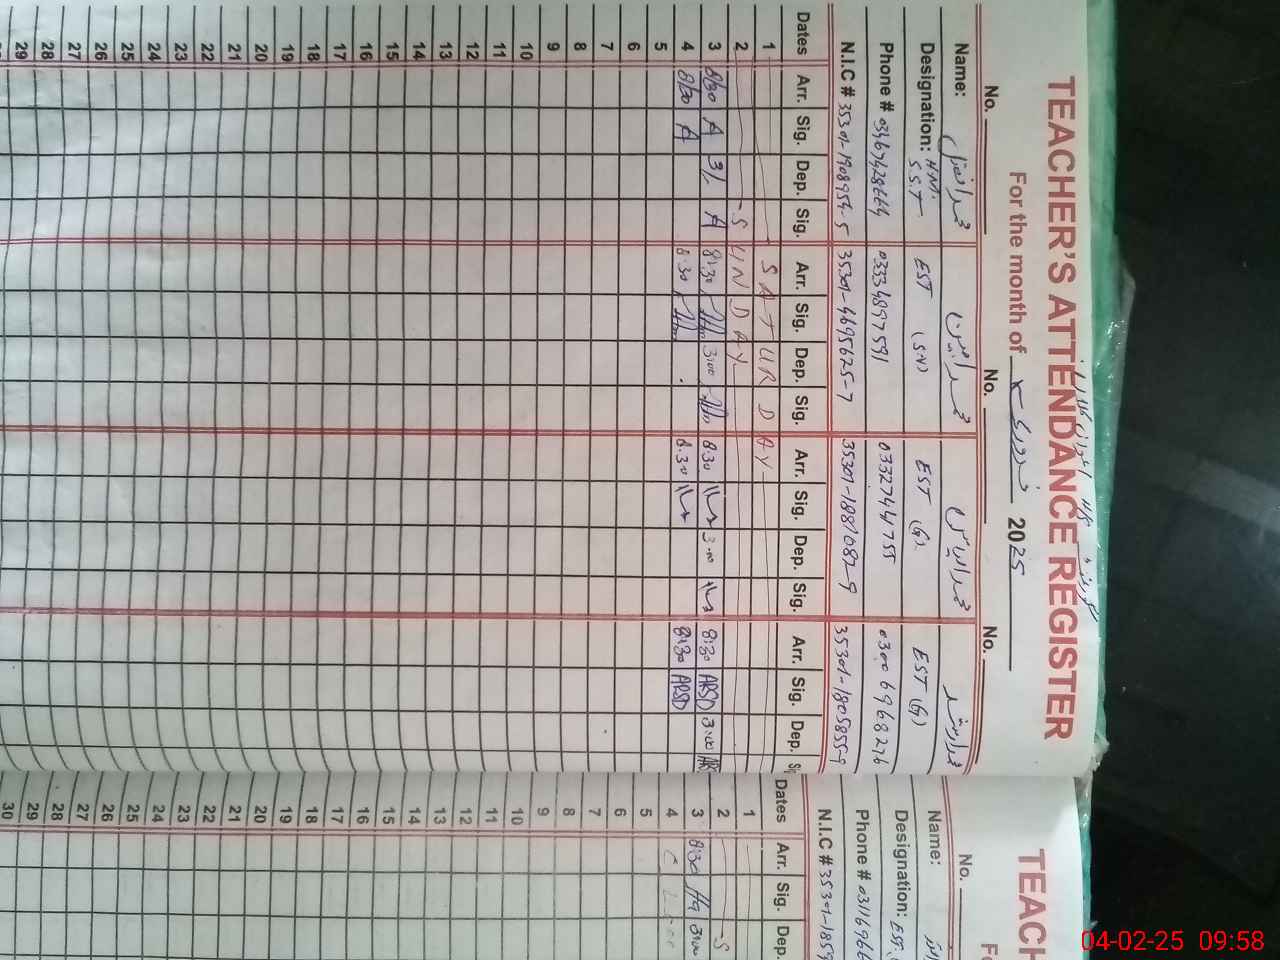 TEACHER'S ATTENDANCE REGISTER
For the month of فروری 2025
No. No. No.
Name: محمد افضل محمد امین محمد الیاس محمد ارشد
Designation: H.M. S.S.T EST (S.V) EST (G). EST (G)
Phone # 03467428664 03334897591 03327447755 03006968276
N.I.C # 35301-1908954-5 35301-4695625-7 35301-1881087-9 35301-1805855-9
Dates Arr. Sig. Dep. Sig. Arr. Sig. Dep. Sig. Arr. Sig. Dep. Sig. Arr. Sig. Dep.
1 SATURDAY
2 SUNDAY
3 8/30 A 3/ A 8:30 3:00 8:30 3:00 8:30 ARSD 3:00
4 8/30 A 8:30 8:30 8:30 ARSD
5
6
7
8
9
10
11
12
13
14
15
16
17
18
19
20
21
22
23
24
25
26
27
28
29
No.
Name:
Designation: EST
Phone # 0311696
N.I.C # 35301-1859
Dates Arr. Sig. Dep.
1
2 S
3 8:30 3:00
4
5
6
7
8
9
10
11
12
13
14
15
16
17
18
19
20
21
22
23
24
25
26
27
28
29
30
04-02-25 09:58